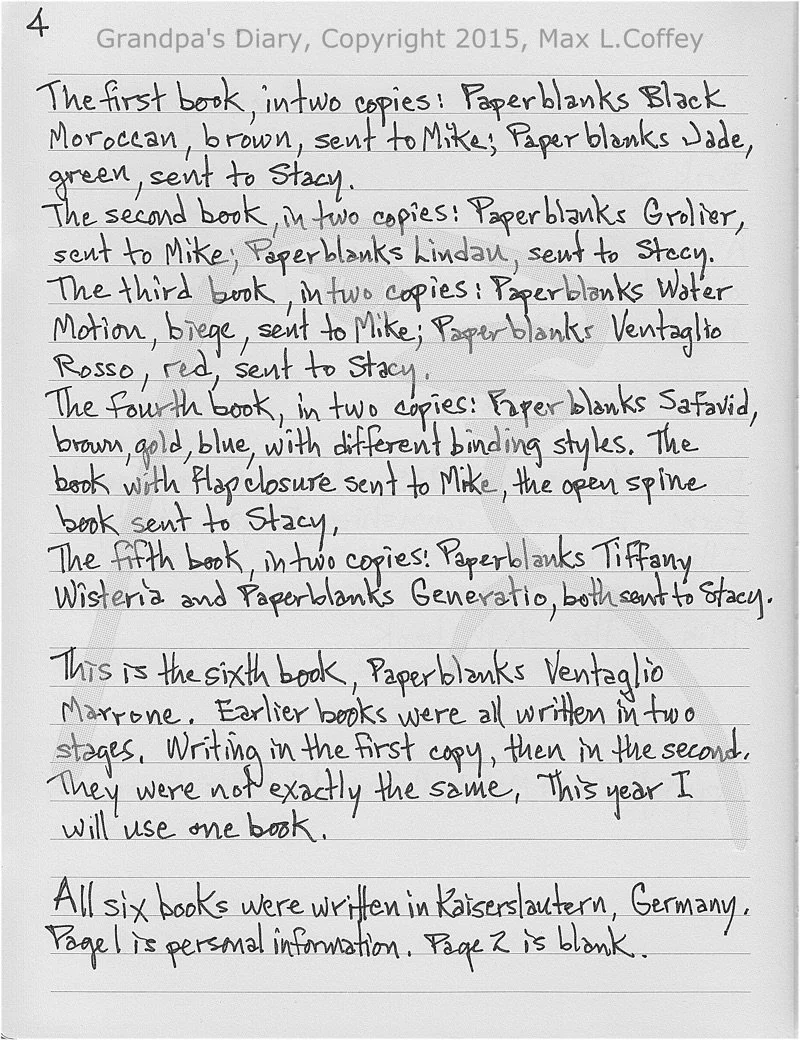 4
Grandpa's Diary, Copyright 2015, Max L.Coffey
The first book, in two copies: Paperblanks Black
Moroccan, brown, sent to Mike; Paperblanks Jade,
green, sent to Stacy.
The second book, in two copies: Paperblanks Grolier,
sent to Mike; Paperblanks Lindau, sent to Stacy.
The third book, in two copies: Paperblanks Water
Motion, biege, sent to Mike; Paperblanks Ventaglio
Rosso, red, sent to Stacy.
The fourth book, in two copies: Paperblanks Safavid,
brown, gold, blue, with different binding styles. The
book with flap closure sent to Mike, the open spine
book sent to Stacy,
The fifth book, in two copies: Paperblanks Tiffany
Wisteria and Paperblanks Generatio, both sent to Stacy.
This is the sixth book, Paperblanks Ventaglio
Marrone. Earlier books were all written in two
stages. Writing in the first copy, then in the second.
They were not exactly the same, This year I
will use one book.
All six books were written in Kaiserslautern, Germany.
Page 1 is personal information. Page 2 is blank.